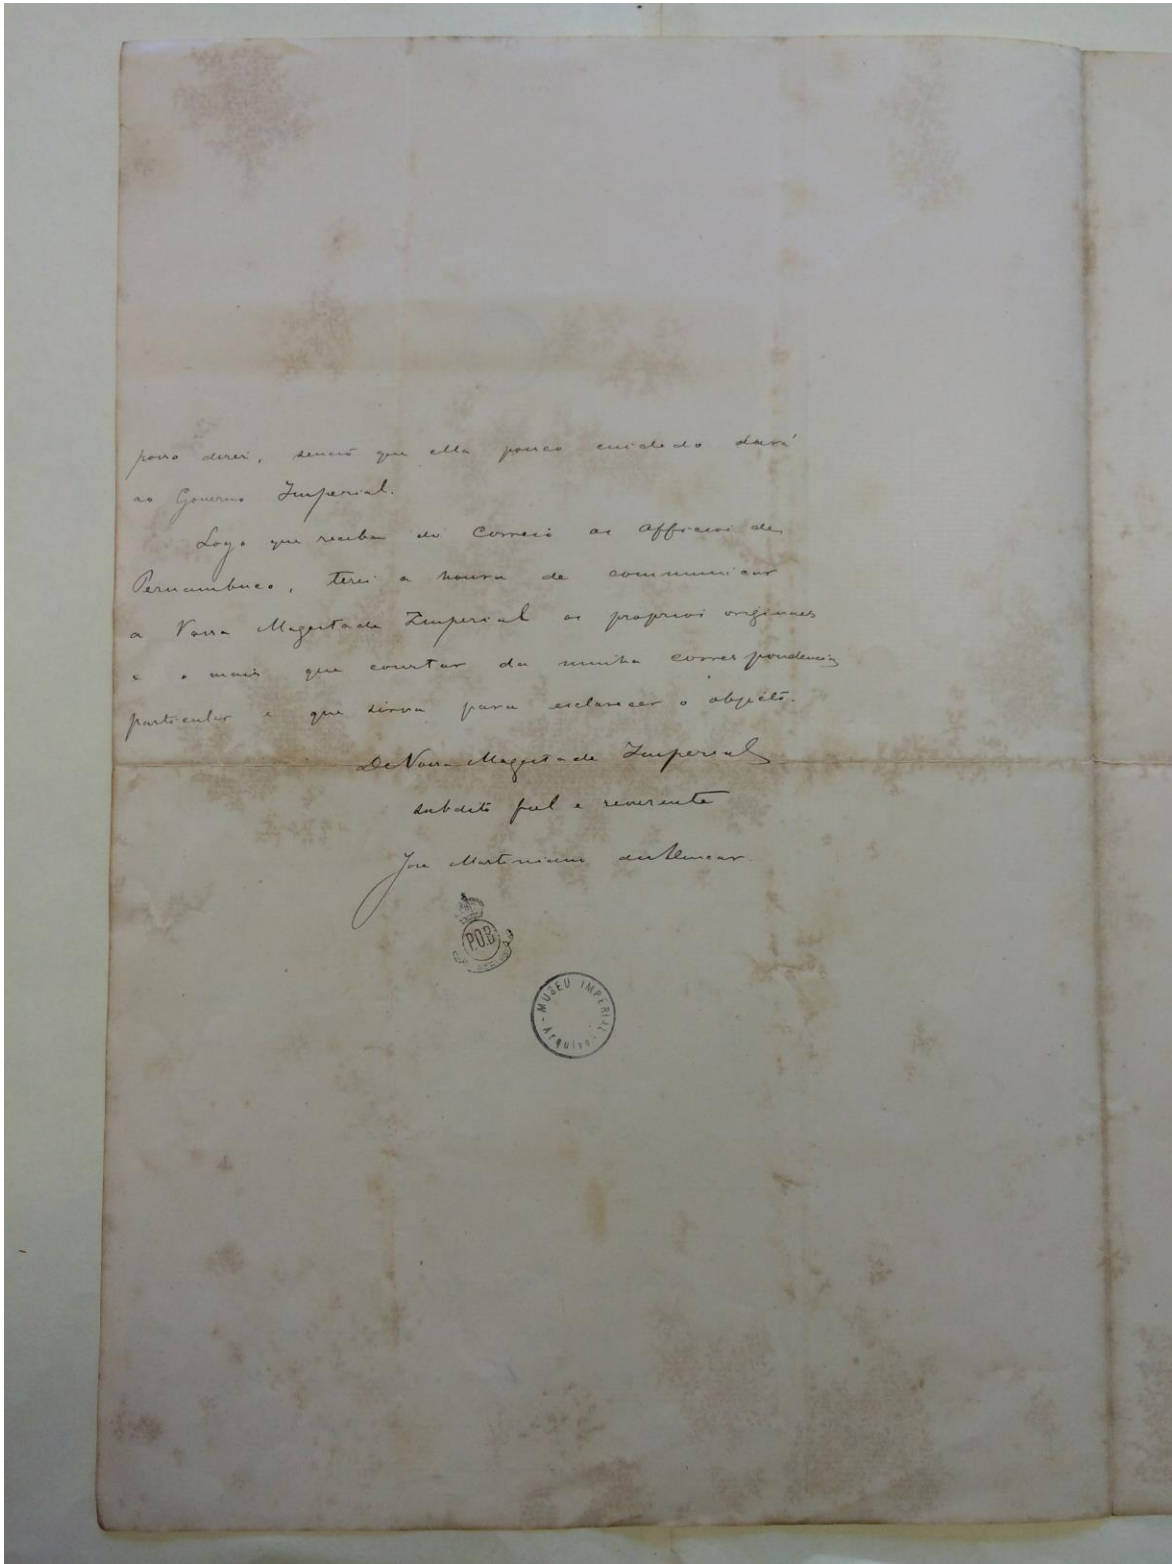 posso dizer, senão que ella pouco cuidado dará
ao Governo Imperial.
Logo que receba do Correio os officios de
Pernambuco, terei a honra de communicar
a Vossa Magestade Imperial os proprios originaes
e o mais que constar da minha correspondencia
particular e que sirva para esclarecer o objecto.
De Vossa Magestade Imperial
subdito fiel e reverente
José Martiniano de Alencar.
P.O.B
MUSEU IMPERIAL
- Arquivo -